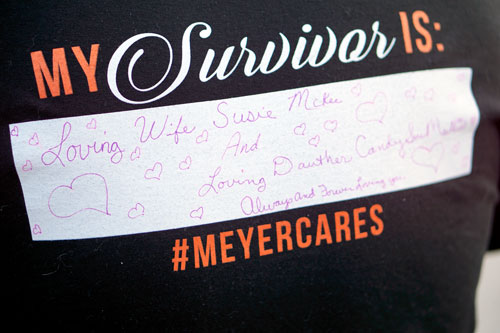 MY Survivor IS:
Loving Wife Susie McKee
And
Loving Dauther Candy
Always and Forever Loving you
#MEYERCARES